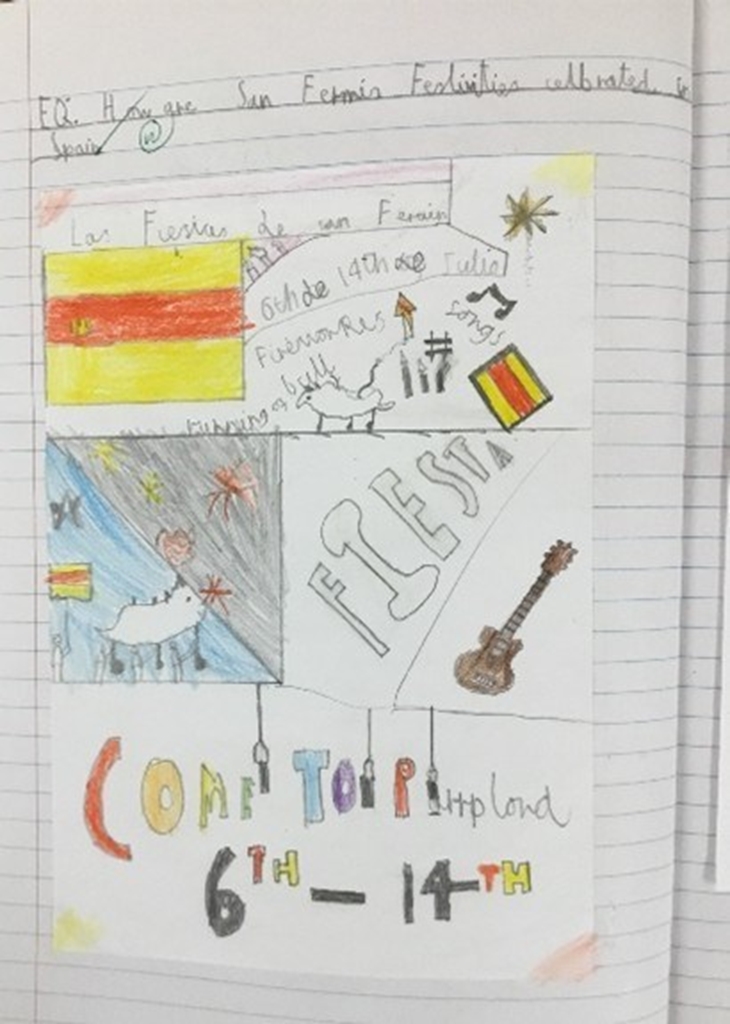 EQ: How are San Fermin Festivities celbrated in
Spain
Las Fiestas de san Fermin
6th de 14th de Julio
Fireworkes
songs
Running of
bull
FIESTA
COME TO P
6TH - 14TH